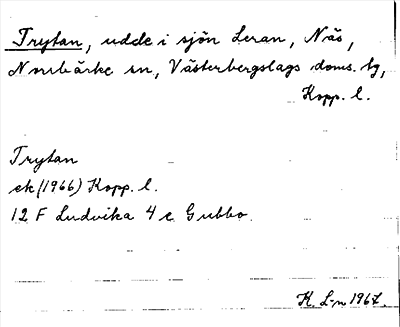 Trytan, udde i sjön Leran, Näs,
Norrbärke sn, Västerbergslags doms. tg,
Kopp. l.
Trytan
ek (1966) Kopp. l.
12 F Ludvika 4 e Gubbo.
K. L-n 1967.